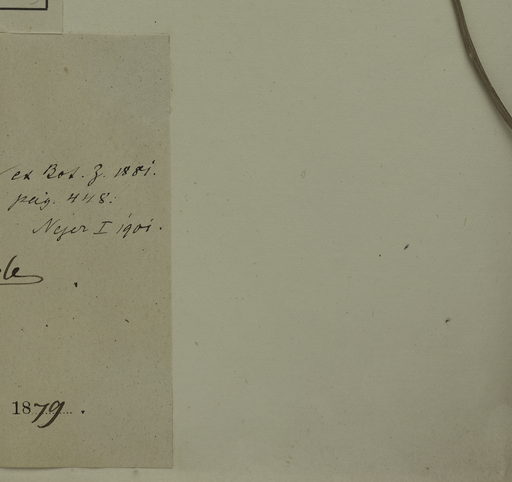 ex Bot. Z. 1881.
pag. 448.
Nejer I 1901.
1879.